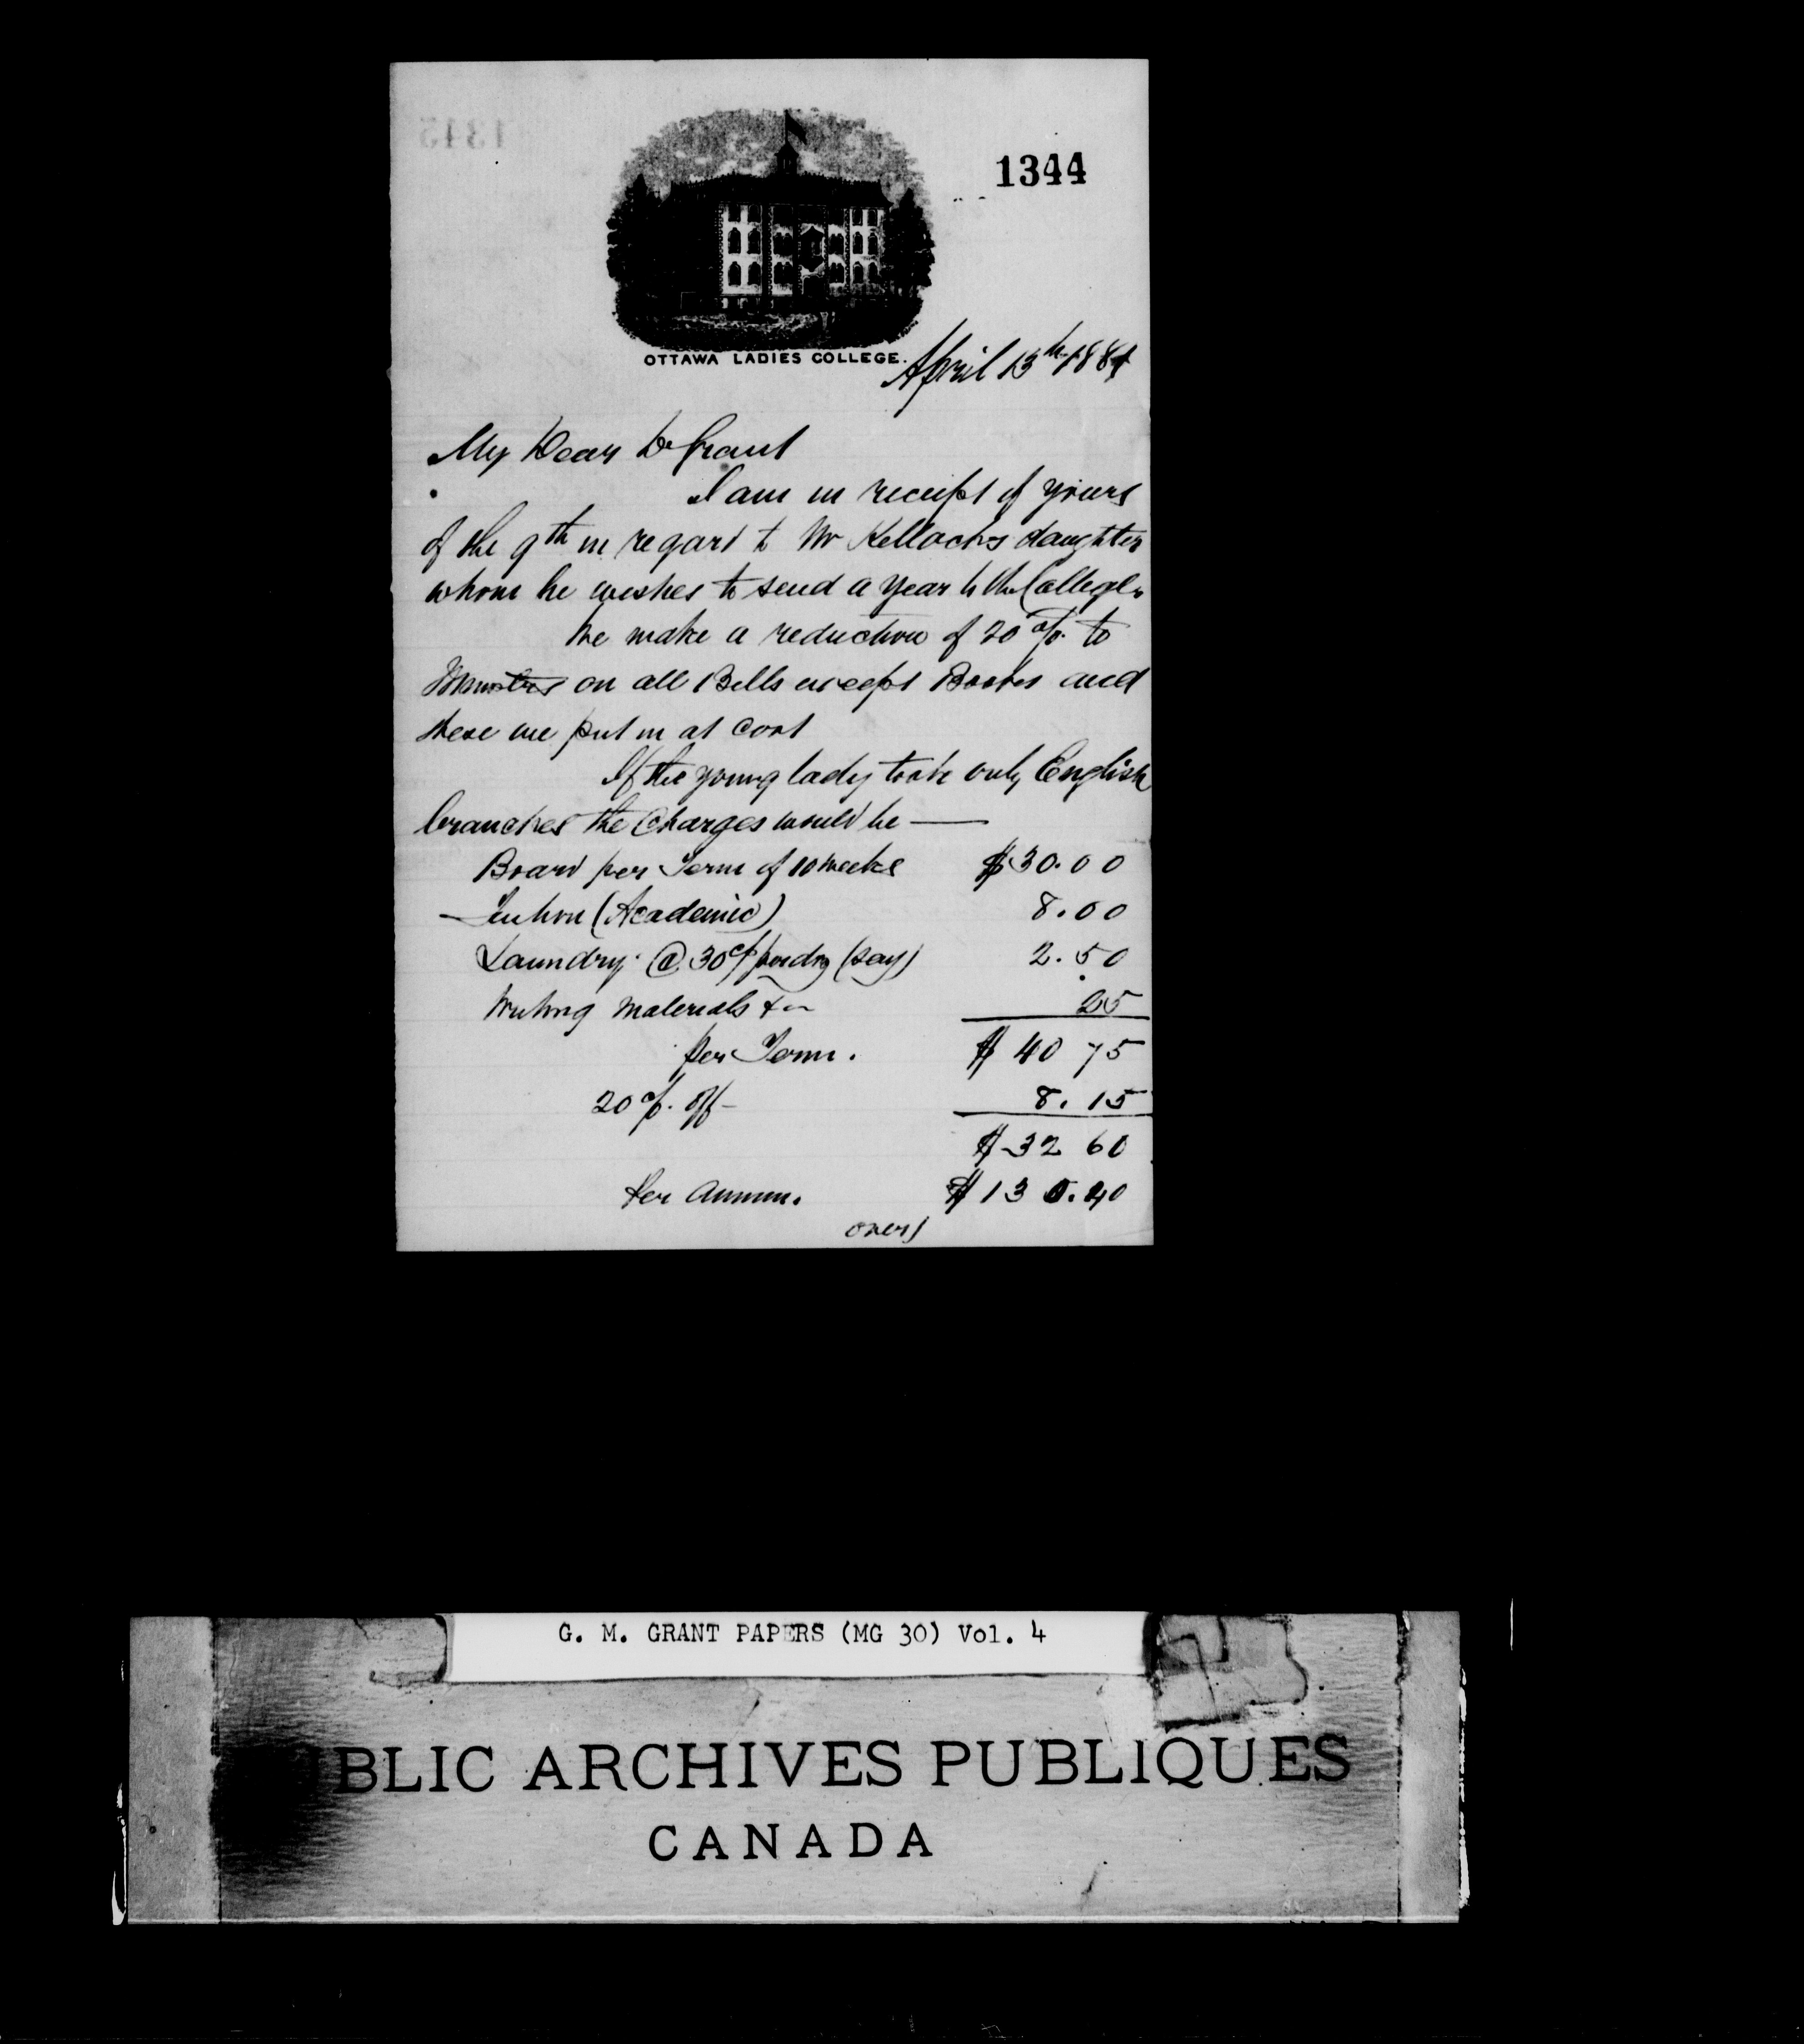 1345
1344
OTTAWA LADIES COLLEGE.
April 13th 1881
My Dear Dr Grant
I am in receipt of yours
of the 9th in regard to Mr Kellock's daughter
whom he wishes to send a year to the College.
We make a reduction of 20 % to
Ministers on all Bills except Books and
these we put in at cost
If the young lady took only English
branches the Charges would be —
Board per Term of 10 weeks $30.00
Tuition (Academic) 8.00
Laundry @ 30c per doz (say) 2.50
Writing Materials &c 25
per Term. $ 40 75
20 %. off – 8.15
$ 32 60
Per Annum. $ 130.40
over)
G. M. GRANT PAPERS (MG 30) Vol. 4
BLIC ARCHIVES PUBLIQUES
CANADA